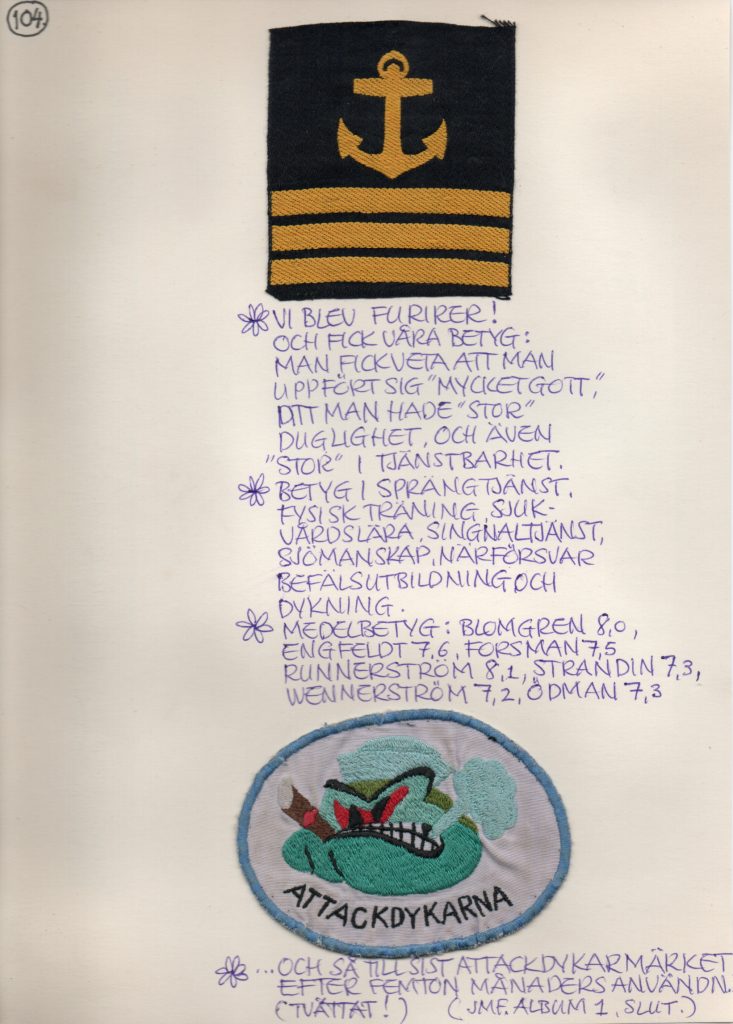 104.
VI BLEV FURIRER!
OCH FICK VÅRA BETYG:
MAN FICK VETA ATT MAN
UPPFÖRT SIG "MYCKET GOTT,"
DITT MAN HADE "STOR"
DUGLIGHET, OCH ÄVEN
"STOR" I TJÄNSTBARHET.
BETYG I SPRÄNGTJÄNST,
FYSISK TRÄNING, SJUK-
VÅRDSLÄRA, SINGNALTJÄNST,
SJÖMANSKAP, NÄRFÖRSVAR
BEFÄLSUTBILDNING OCH
DYKNING.
MEDELBETYG: BLOMGREN 8,0,
ENGFELDT 7,6, FORSMAN 7,5
RUNNERSTRÖM 8,1, STRANDIN 7,3,
WENNERSTRÖM 7,2, ÖDMAN 7,3
ATTACKDYKARNA
...OCH SÅ TILL SIST ATTACKDYKARMÄRKET
EFTER FEMTON MÅNADERS ANVÄNDN.
(TVÄTTAT!) (JMF. ALBUM 1, SLUT.)